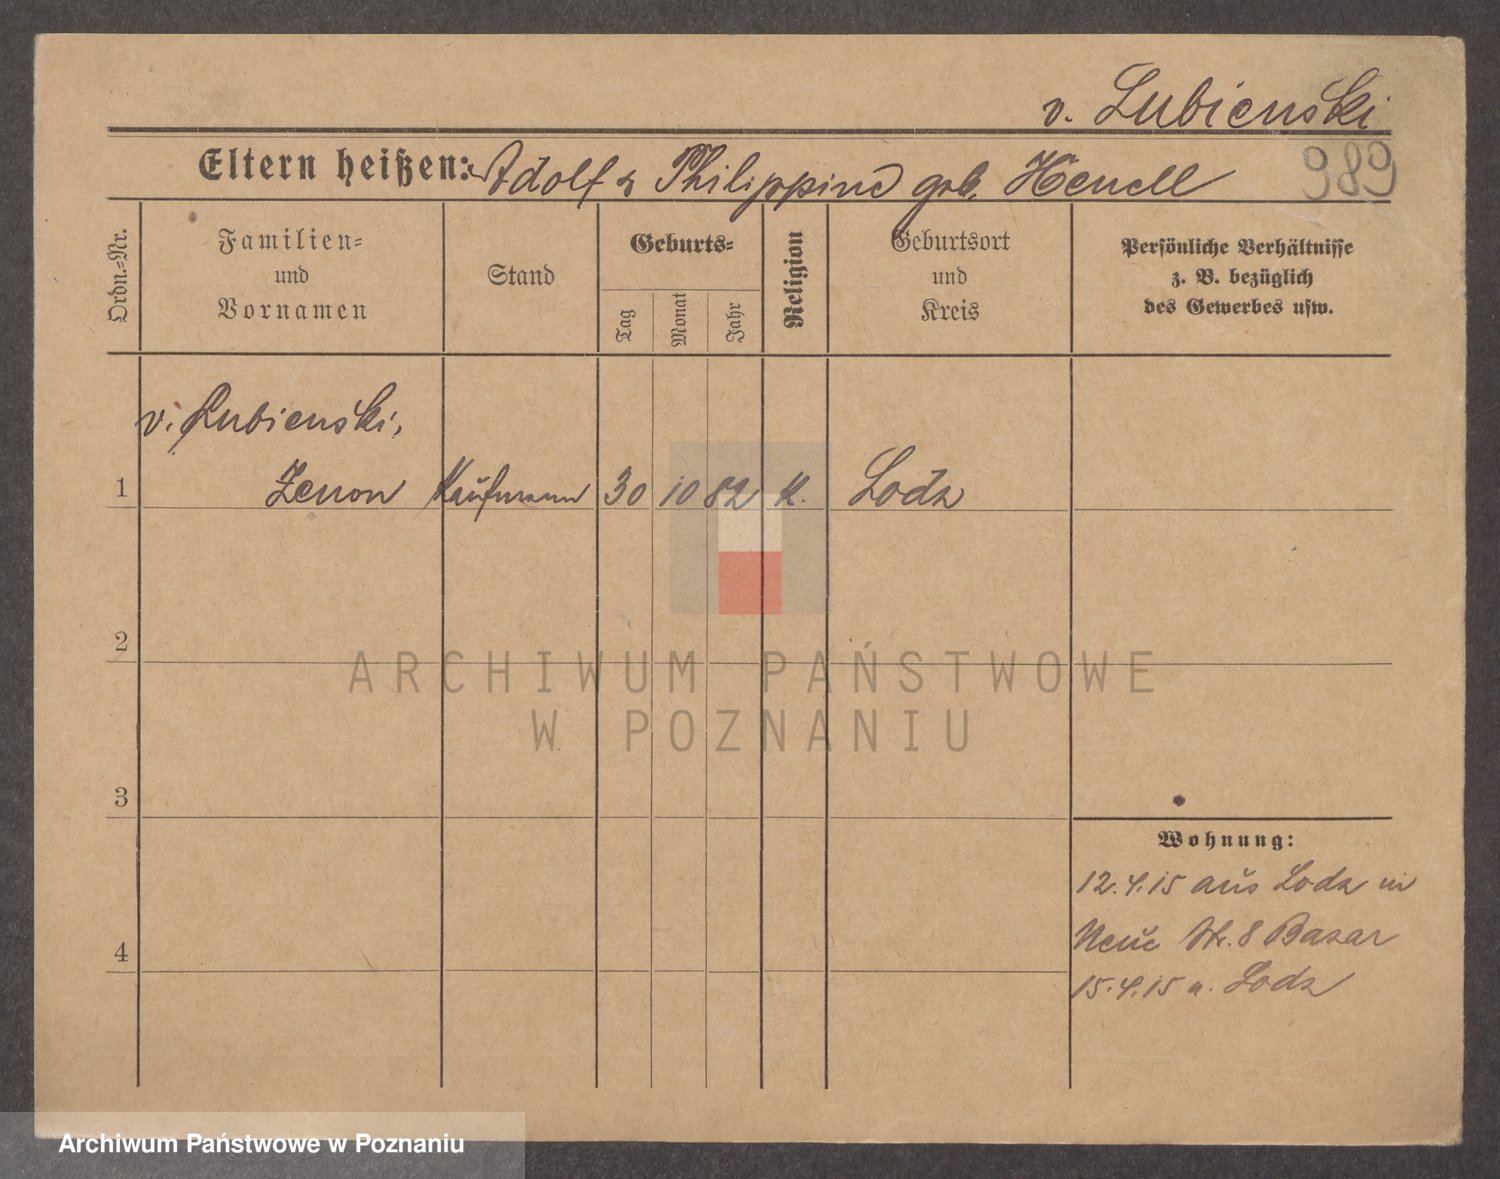 v. Lubienski
Eltern heißen: Adolf & Philippine geb. Henell
989
Ordn.-Nr.
Familien-
und
Vornamen
Stand
Geburts-
Tag
Monat
Jahr
Religion
Geburtsort
und
Kreis
Persönliche Verhältnisse
z. B. bezüglich
des Gewerbes usw.
v. Lubienski,
1 Zenon Kaufmann 30 10 82 K. Lodz
2
ARCHIWUM PAŃSTWOWE
W POZNANIU
3
Wohnung:
12.4.15 aus Lodz in
Neue Str. 8 Bazar
4
15.4.15 n. Lodz
Archiwum Państwowe w Poznaniu